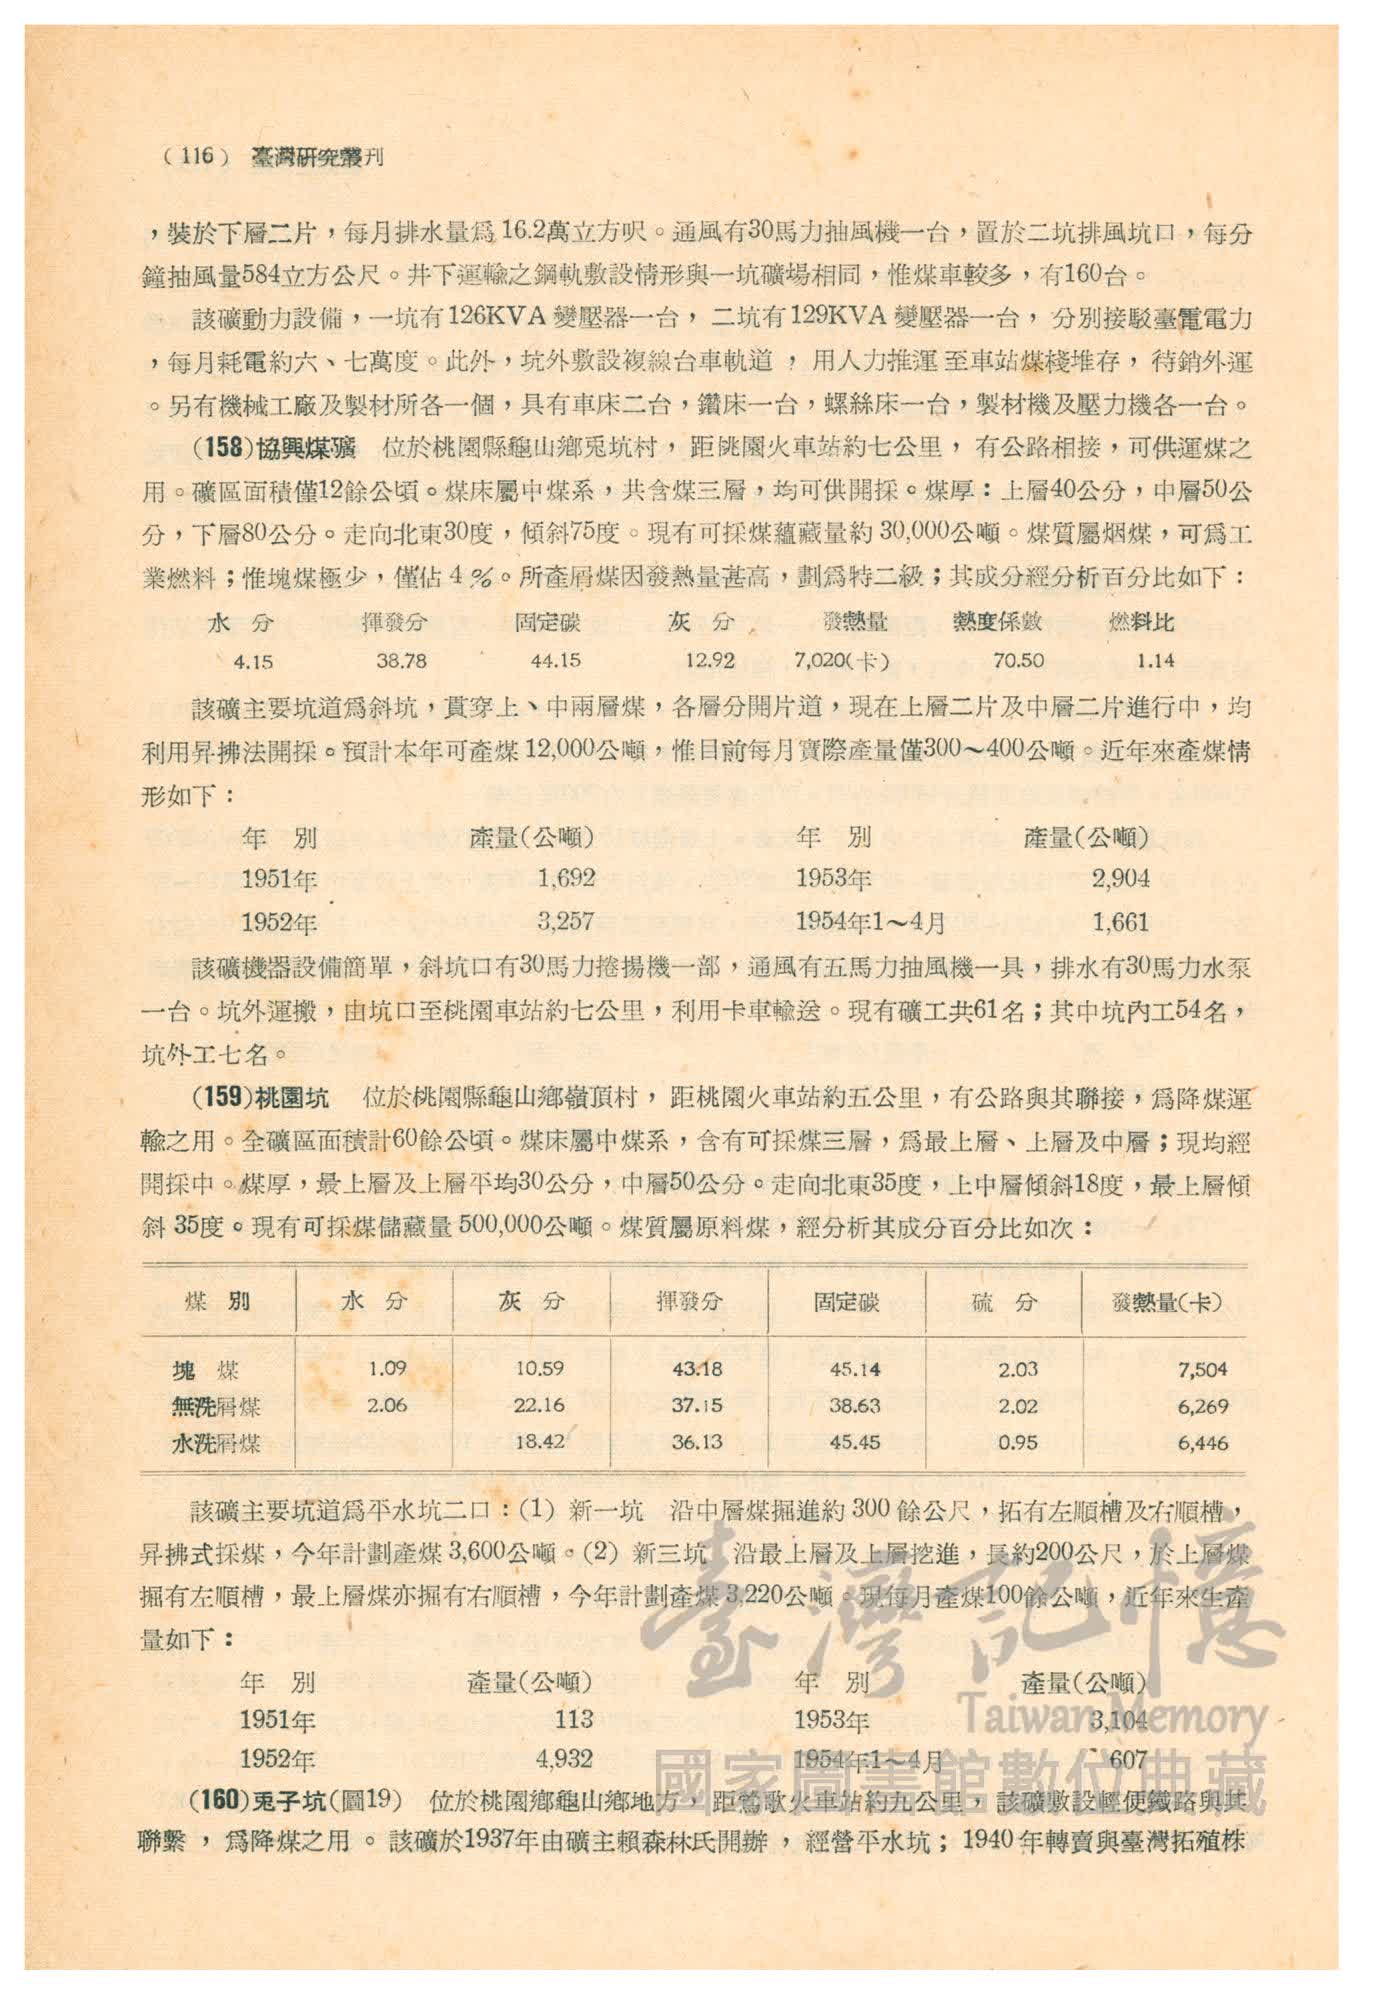 (116) 臺灣研究叢刊
，裝於下層二片，每月排水量爲16.2萬立方呎。通風有30馬力抽風機一台，置於二坑排風坑口，每分
鐘抽風量584立方公尺。井下運輸之鋼軌敷設情形與一坑礦場相同，惟煤車較多，有160台。
該礦動力設備，一坑有126KVA變壓器一台，二坑有129KVA變壓器一台，分別接駁臺電電力
，每月耗電約六、七萬度。此外，坑外敷設複線台車軌道，用人力推運至車站煤棧堆存，待銷外運
。另有機械工廠及製材所各一個，具有車床二台，鑽床一台，螺絲床一台，製材機及壓力機各一台。
(158)協興煤礦　位於桃園縣龜山鄉兎坑村，距桃園火車站約七公里，有公路相接，可供運煤之
用。礦區面積僅12餘公頃。煤床屬中煤系，共含煤三層，均可供開採。煤厚：上層40公分，中層50公
分，下層80公分。走向北東30度，傾斜75度。現有可採煤蘊藏量約30,000公噸。煤質屬烟煤，可爲工
業燃料；惟塊煤極少，僅佔4％。所產屑煤因發熱量甚高，劃爲特二級；其成分經分析百分比如下：
水　分　揮發分　固定碳　灰　分　發熱量　熱度係數　燃料比
4.15　38.78　44.15　12.92　7,020(卡)　70.50　1.14
該礦主要坑道爲斜坑，貫穿上、中兩層煤，各層分開片道，現在上層二片及中層二片進行中，均
利用昇拂法開採。預計本年可產煤12,000公噸，惟目前每月實際產量僅300～400公噸。近年來產煤情
形如下：
年　別　產量(公噸)　年　別　產量(公噸)
1951年　1,692　1953年　2,904
1952年　3,257　1954年1～4月　1,661
該礦機器設備簡單，斜坑口有30馬力捲揚機一部，通風有五馬力抽風機一具，排水有30馬力水泵
一台。坑外運搬，由坑口至桃園車站約七公里，利用卡車輸送。現有礦工共61名；其中坑內工54名，
坑外工七名。
(159)桃園坑　位於桃園縣龜山鄉嶺頂村，距桃園火車站約五公里，有公路與其聯接，爲降煤運
輸之用。全礦區面積計60餘公頃。煤床屬中煤系，含有可採煤三層，爲最上層、上層及中層；現均經
開採中。煤厚，最上層及上層平均30公分，中層50公分。走向北東35度，上中層傾斜18度，最上層傾
斜35度。現有可採煤儲藏量500,000公噸。煤質屬原料煤，經分析其成分百分比如次：
煤　別　水　分　灰　分　揮發分　固定碳　硫　分　發熱量(卡)
塊　煤　1.09　10.59　43.18　45.14　2.03　7,504
無洗屑煤　2.06　22.16　37.15　38.63　2.02　6,269
水洗屑煤　18.42　36.13　45.45　0.95　6,446
該礦主要坑道爲平水坑二口：(1) 新一坑　沿中層煤掘進約300餘公尺，拓有左順槽及右順槽，
昇拂式採煤，今年計劃產煤3,600公噸。(2) 新三坑　沿最上層及上層挖進，長約200公尺，於上層煤
掘有左順槽，最上層煤亦掘有右順槽，今年計劃產煤3,220公噸。現每月產煤100餘公噸，近年來生產
量如下：
年　別　產量(公噸)　年　別　產量(公噸)
1951年　113　1953年　3,104
1952年　4,932　1954年1～4月　607
(160)兎子坑(圖19)　位於桃園鄉龜山鄉地方，距鶯歌火車站約九公里，該礦敷設輕便鐵路與其
聯繫，爲降煤之用。該礦於1937年由礦主賴森林氏開辦，經營平水坑；1940年轉賣與臺灣拓殖株
臺灣記憶
Taiwan Memory
國家圖書館數位典藏